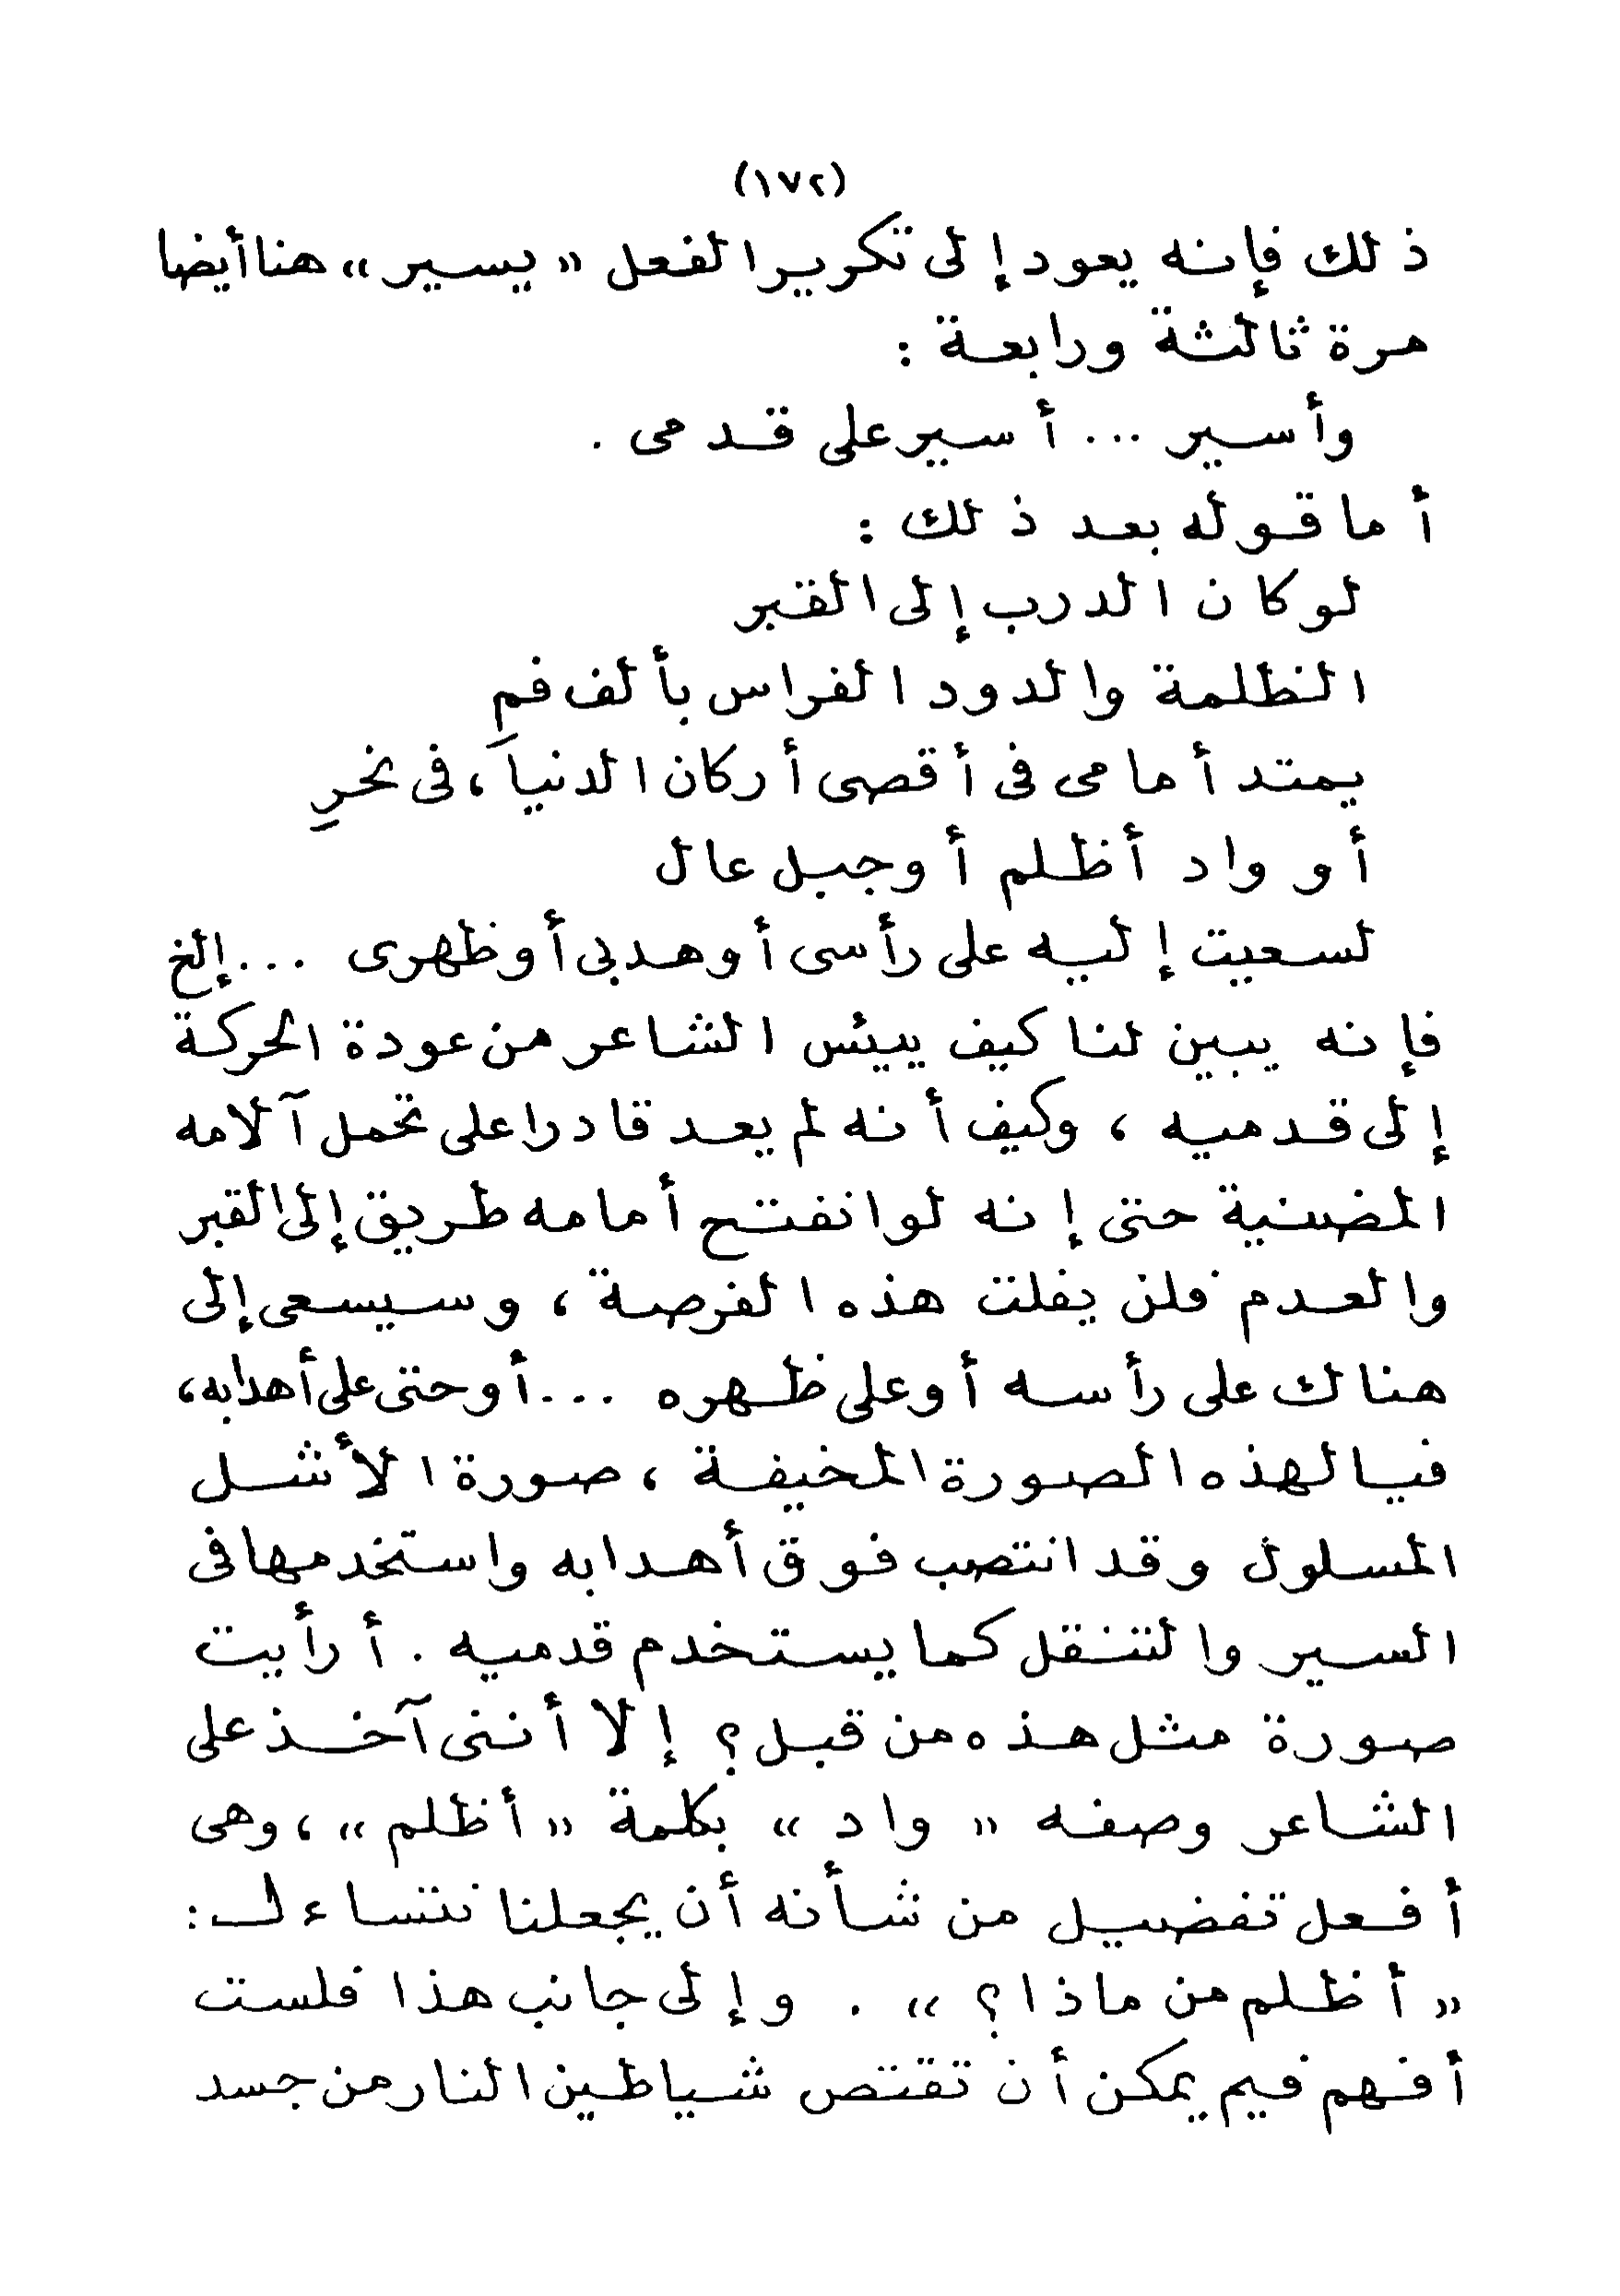 (١٧٢)
ذلك فإنه يعود إلى تكرير الفعل « يسير » هنا أيضا
مرة ثالثة ورابعة :
وأسير ... أسير على قدمى .
أما قوله بعد ذلك :
لو كان الدرب إلى القبر
الظلمة والدود الفراس بألف فمِ
يمتد أمامى فى أقصى أركان الدنيا ، فى نخرِ
أو واد أظلم أو جبل عال
لسعيت إليه على رأسى أو هدبى أو ظهرى ... إلخ
فإنه يبين لنا كيف ييئس الشاعر من عودة الحركة
إلى قدميه ، وكيف أنه لم يعد قادرا على تحمل آلامه
المضنية حتى إنه لو انفتح أمامه طريق إلى القبر
والعدم فلن يفلت هذه الفرصة ، وسيسعى إلى
هناك على رأسه أو على ظهره ... أو حتى على أهدابه ،
فيا لهذه الصورة المخيفة ، صورة الأشل
المسلول وقد انتصب فوق أهدابه واستخدمها فى
السير والتنقل كما يستخدم قدميه . أرأيت
صورة مثل هذه من قبل ؟ إلا أننى آخذ على
الشاعر وصفه « واد » بكلمة « أظلم » ، وهى
أفعل تفضيل من شأنه أن يجعلنا نتساءل :
« أظلم من ماذا ؟ » . وإلى جانب هذا فلست
أفهم فيم يمكن أن تقتص شياطين النار من جسد